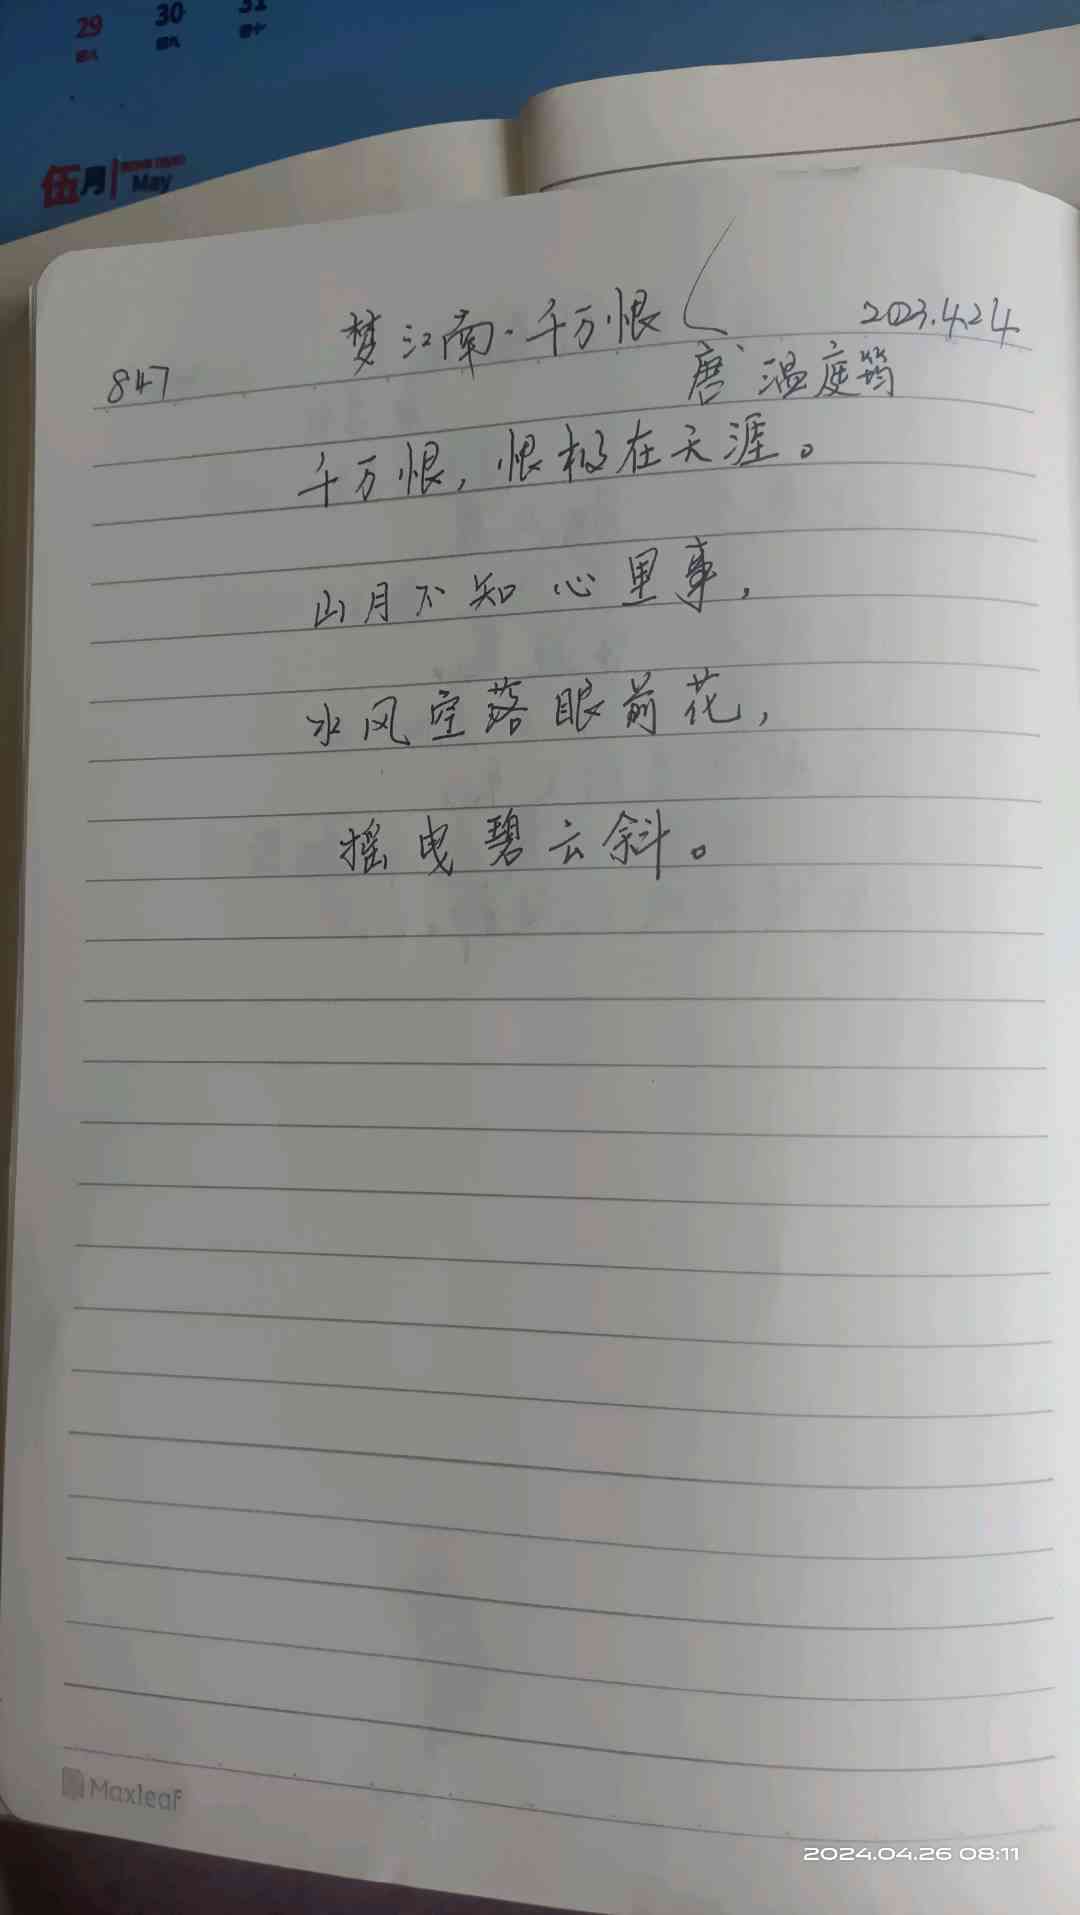 29 30 31
伍月 May
梦江南·千万恨
2023.4.24
847
唐、温庭筠
千万恨，恨极在天涯。
山月不知心里事，
水风空落眼前花，
摇曳碧云斜。
Maxleaf
2024.04.26 08:11